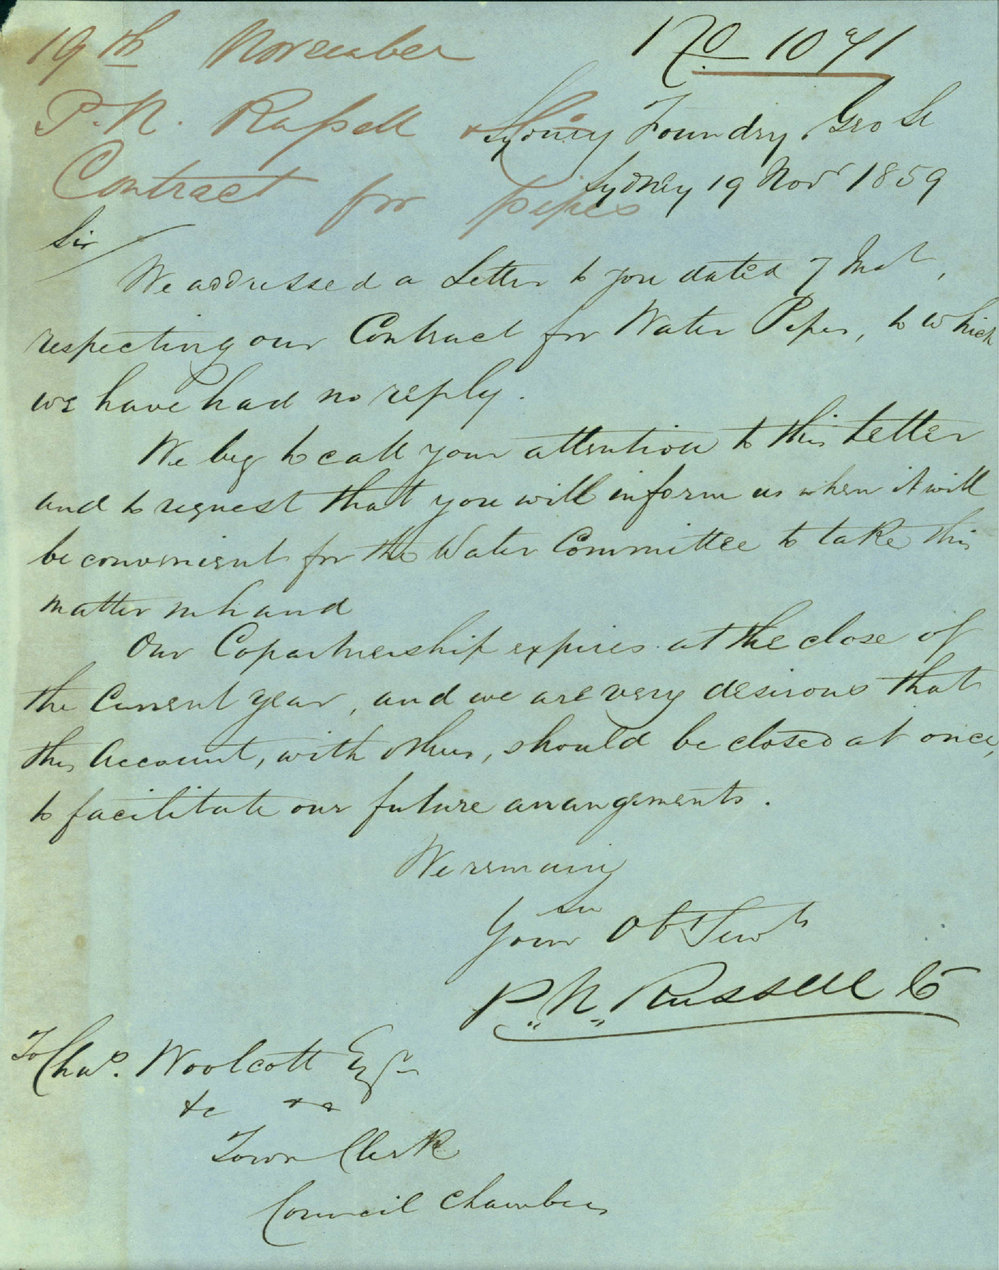 19th November
No 1071
P. N. Russell & Co
Contract for pipes
Sydney Foundry, Geo St
Sydney 19 Novr 1859
Sir
We addressed a Letter to you dated 7 Inst,
respecting our Contract for Water Pipes, to which
we have had no reply.
We beg to call your attention to this Letter
and to request that you will inform us when it will
be convenient for the Water Committee to take this
matter in hand
Our Copartnership expires at the close of
the Current year, and we are very desirous that
this Account, with others, should be closed at once,
to facilitate our future arrangements.
We remain
Sir
Your Obt Servts
P. N. Russell Co
To Chas. Woolcott Esqr
&c &c
Town Clerk
Council Chambers